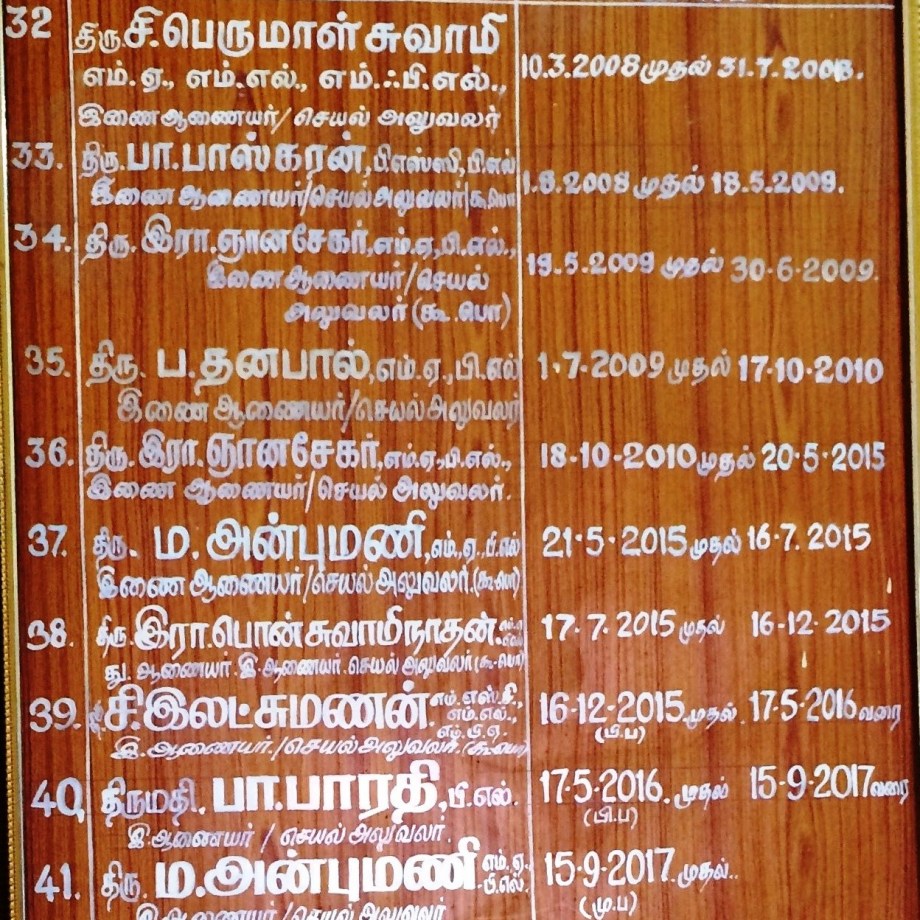 32 திரு.சி.பெருமாள்சுவாமி
எம்.ஏ., எம்.எல்., எம்.ஃபி.எல்., 10.3.2008 முதல் 31.7.2008.
இணைஆணையர்/செயல் அலுவலர்
33. திரு.பா.பாஸ்கரன்,பிஎஸ்ஸி,பி.எல்
இணை ஆணையர்/செயல்அலுவலர்/கூ.பொ 1.8.2008 முதல் 18.5.2009.
34. திரு.இரா.ஞானசேகர்,எம்.ஏ,பி.எல்.,
இணைஆணையர்/செயல் 19.5.2009 முதல் 30.6.2009.
அலுவலர்(கூ.பொ)
35. திரு. ப.தனபால்,எம்.ஏ.,பி.எல் 1.7.2009 முதல் 17.10.2010
இணை ஆணையர்/செயல்அலுவலர்
36. திரு.இரா.ஞானசேகர்,எம்.ஏ,பி.எல்., 18-10-2010 முதல் 20.5.2015
இணை ஆணையர்/செயல் அலுவலர்.
37. திரு. ம.அன்புமணி,எம்.ஏ.,பி.எல் 21.5.2015 முதல் 16.7.2015
இணை ஆணையர்/செயல் அலுவலர்.(கூ.பொ)
38. திரு.இரா.பொன்சுவாமிநாதன். 17.7.2015 முதல் 16-12-2015
து.ஆணையர்.இ.ஆணையர்.செயல் அலுவலர்(கூ.பொ)
39. சி.இலட்சுமணன். எம்.எஸ்.சி., 16-12-2015.முதல். 17.5.2016 வரை
எம்.எல்., (பி.ப)
எம்.பி.ஏ.
இ.ஆணையர்./செயல்அலுவலர்.(கூ.பொ)
40, திருமதி. பா.பாரதி,பி.எல். 17.5.2016. முதல் 15-9-2017வரை
(பி.ப)
இ.ஆணையர் / செயல் அலுவலர்.
41. திரு. ம.அன்புமணி எம்.ஏ. 15-9-2017.முதல்..
பி.எல். (மு.ப)
இ.ஆணையர் /செயல் அலுவலர்